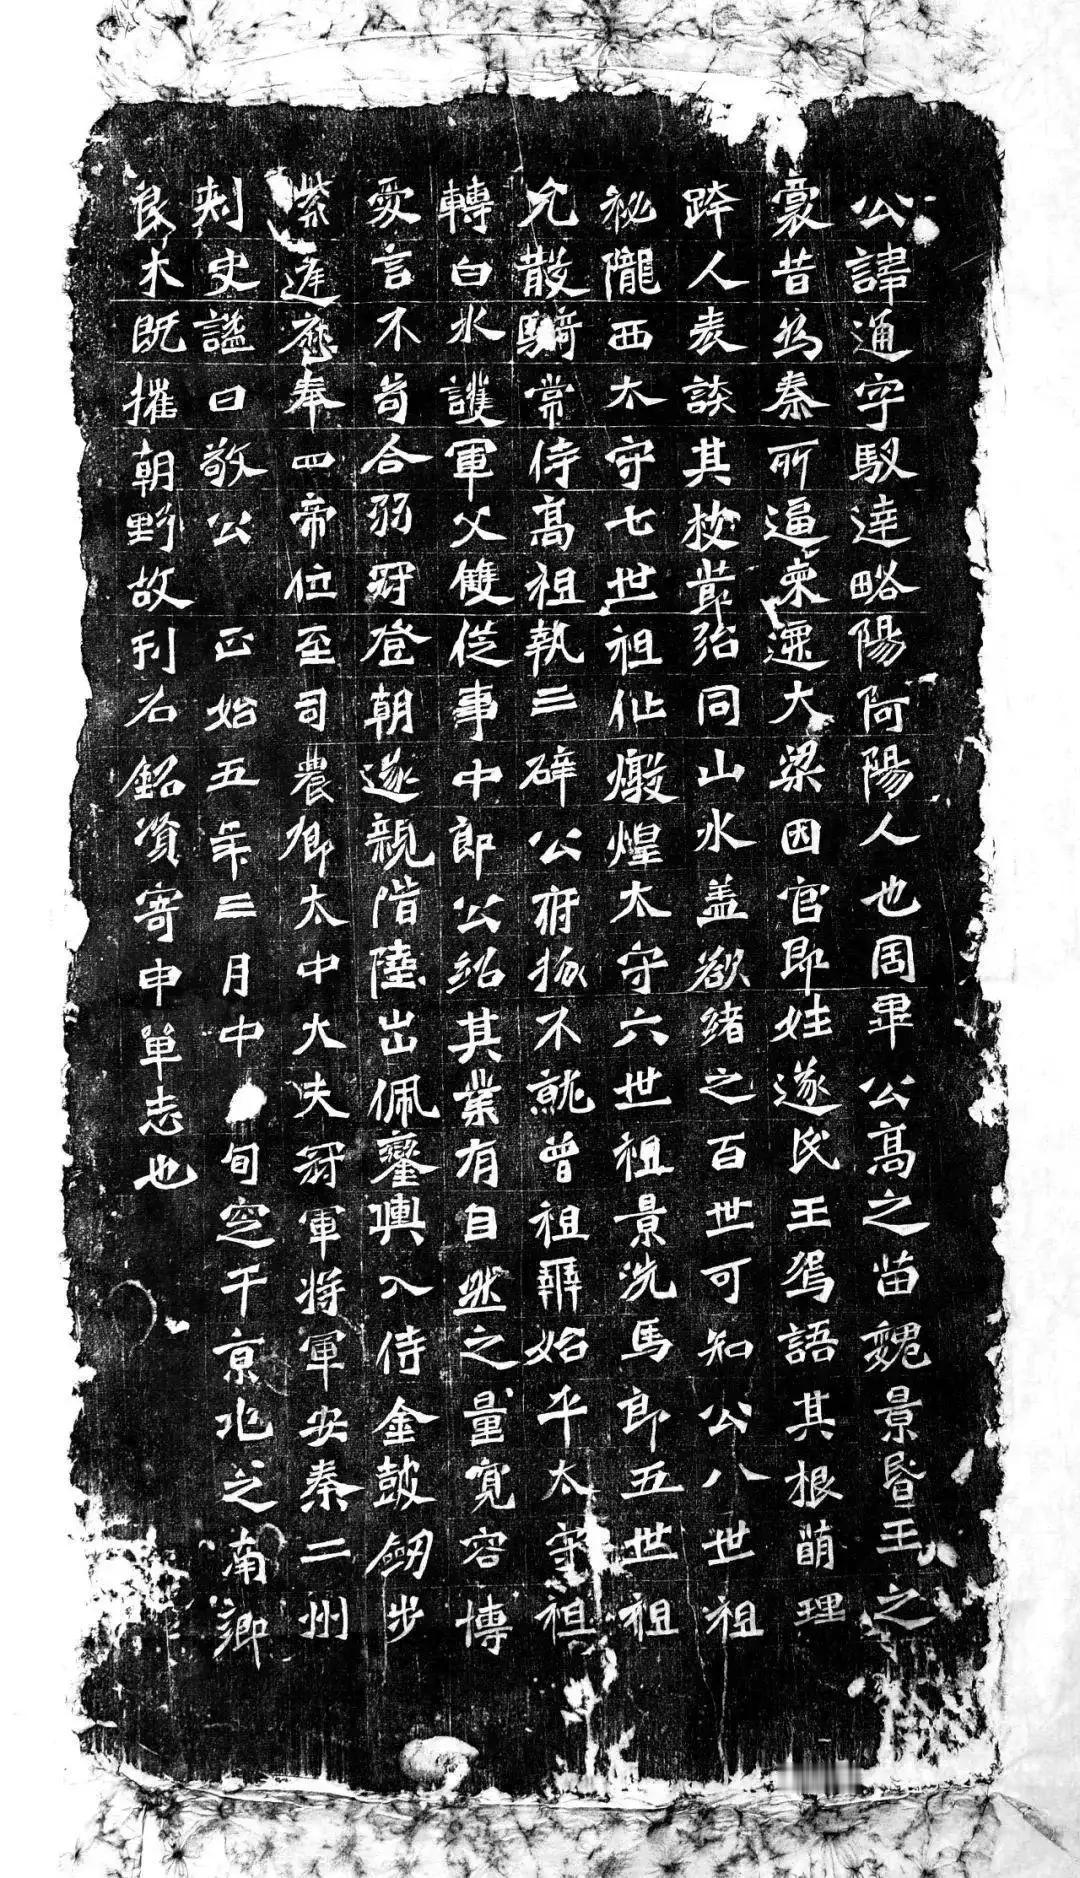 公諱通字馭達略陽阿陽人也周畢公高之苗魏景昬王之
豪昔為秦所逼東遷大梁因官即姓遂氏王焉語其根萌理
跨人表談其枝叢殆同山水盖欲緒之百世可知公八世祖
祕隴西太守七世祖仙燉煌太守六世祖景洗馬郎五世祖
允散騎常侍高祖執三辟公府掾不就曾祖羆始平太守祖
轉白水護軍父雙從事中郎公紹其業有自然之量寬容博
愛言不苟合弱冠登朝遂親階陸出佩鑾輿入侍金鼓劒步
紫遲歷奉四帝位至司農卿太中大夫冠軍將軍安秦二州
刺史謚曰敬公 正始五年三月中旬空于京兆之南鄉
良木既摧朝野故刊石銘資寄申單志也